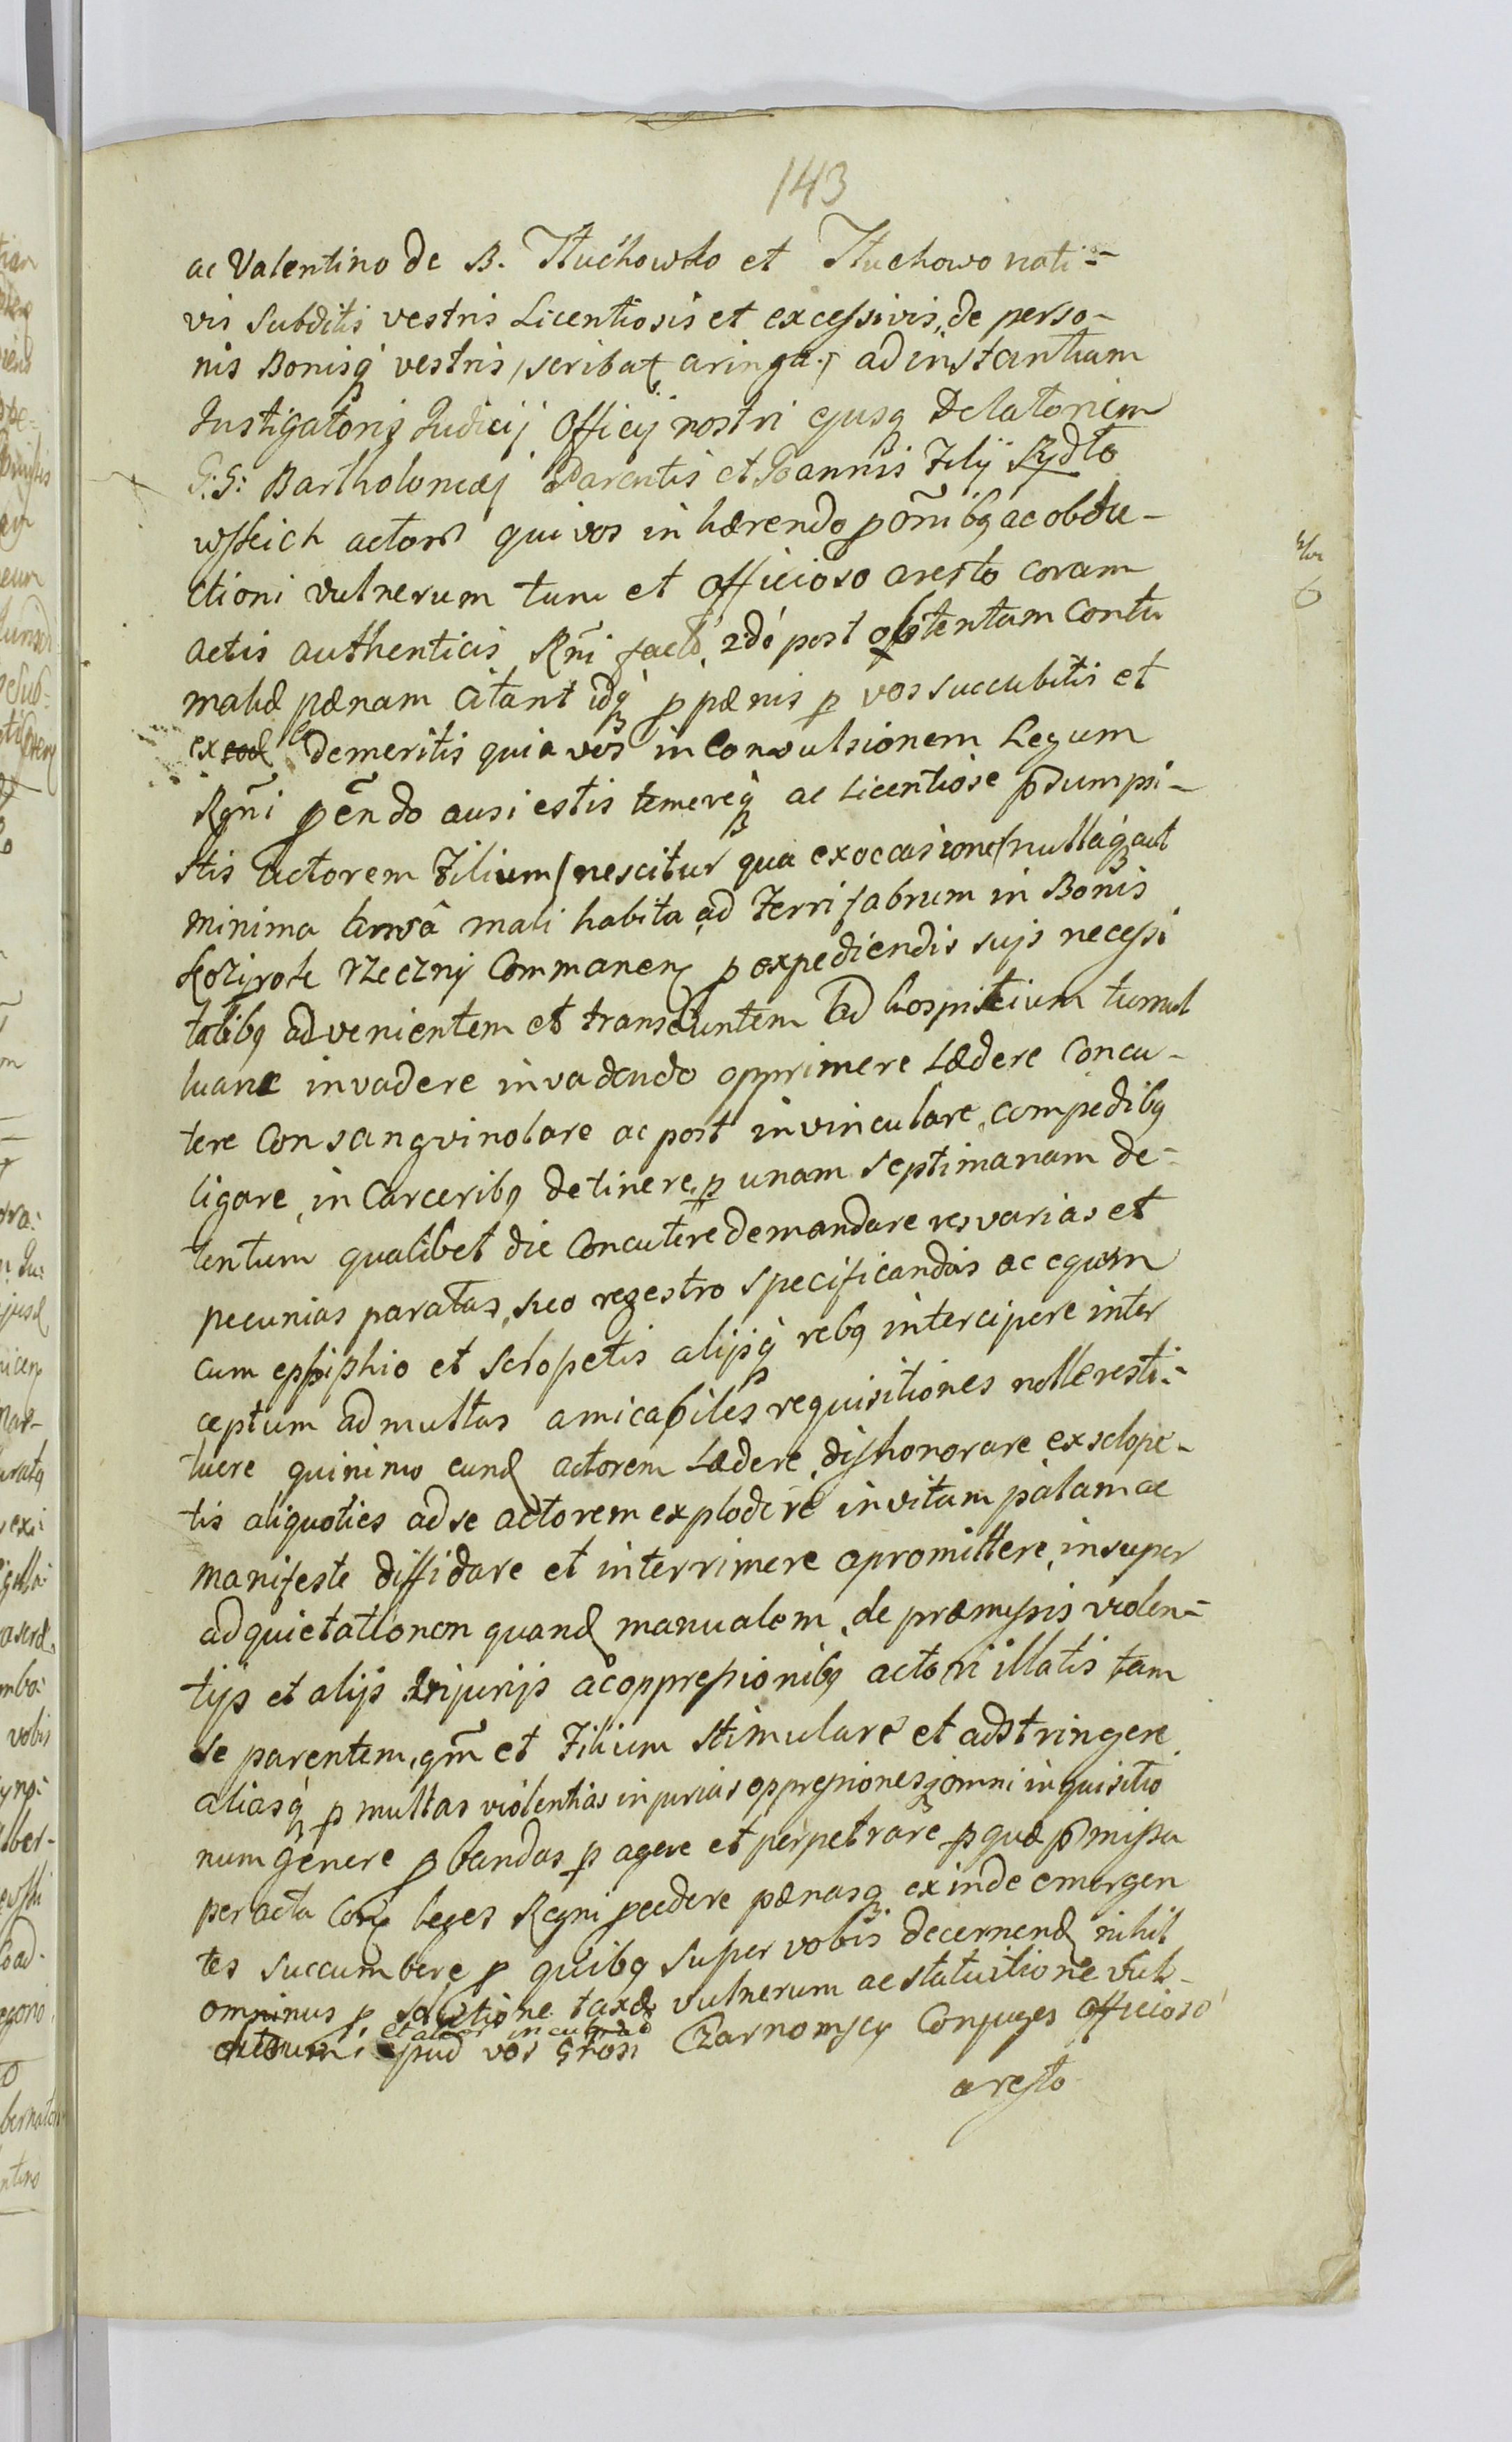 143
ac Valentino de B. Tłuchowsko et Tłuchowo nati-
vis subditis vestris Licentiosis et excessivis, de perso-
nis Bonisq vestris, scribat aringa, ad instantiam
Instigatoris Judicij Officij nostri ejusq Delatorum
G: G: Bartholomæj Parentis et Joannis Filij Rydło
wskich actorũ qui vos inhærendo ꝓõnibq ac obdu-
ctioni vulnerum tum et officioso aresto coram
actis authenticis Rñi facto, 2dó post obtentam contu
maciæ pænam citant idq p pænis p vos succubitis et
ex demeritis quia vos in convulsionem Legum
Rgñi pẽndo ausi estis temereq ac licentiose p̃sumpsi-
stis actorem Filium / nescitur qua ex occasione / nullaq aut
minima causâ mali habita ad Ferrifabrum in Bonis
Kozirok rzeczny Commanen p expediendis suis necessi
tatibq advenientem et transeuntem ad hospitium tumul
tuane invadere invadendo opprimere Lædere concu-
tere consangvinolare ac post invinculare, compedibq
ligare, in Carceribq detinere, p unam septimanam de-
tentum qualibet die concutere demandare res varias et
pecunias paratas, suo regestro specificandas ac equum
cum ephiphio et sclopetis alijsq rebq intercipere inter
ceptum ad multas amicabiles requisitiones nolle resti-
tuere quinimo eund actorem Lædere, dishonorare ex sclope-
tis aliquoties ad se actorem explodere invitum palam ac
manifeste diffidare et interrimere apromittere, insuper
ad quietationem quand manualem, de præmissis violen-
tijs et alijs injurijs ac oppressionibq actori illatis tam
se parentem, qm̃ et Filium stimulare et adstringere
aliasq p multas violentias injurias oppressionesq omni inquisitio
num genere pbandas p agere et perpetrare p quæ p̃missa
peracta Con leges Regni pcedere pænasq exinde emergen
tes succumbere p quibq super vobis decernend nihil
ominus p solutione taxæ vulnerum ac statuitione vul-
apud vos Grosi Czarnomscy Conjuges officioso
aresto